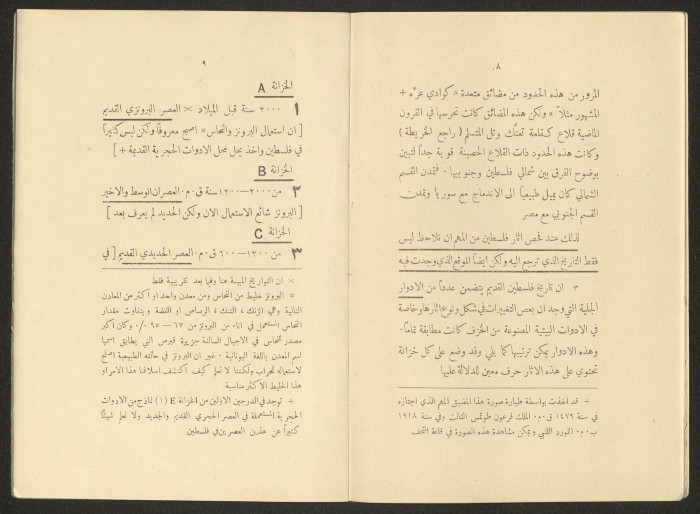 ٨
المرور من هذه الحدود من مضائق متعددة «كوادي عرّه +
المشهور مثلاً» ولكن هذه المضائق كانت تحرسها في القرون
الماضية قلاع كقلعة تعنّك وتل المتسلم ( راجع الخريطة )
وكانت هذه الحدود ذات القلاع الحصينة قوية جداً لتبين
بوضوح الفرق بين شمالي فلسطين وجنوبيها . فتمدن القسم
الشمالي كان يميل طبيعياً الى الاندماج مع سوريا وتمدن
القسم الجنوبي مع مصر
لذلك عند فحص اثار فلسطين من المهم ان نلاحظ ليس
فقط التاريخ الذي ترجع اليه ولكن ايضاً الموقع الذي وجدت فيه
٣ ان تاريخ فلسطين القديم يتضمن عدداً من الادوار
الجلية التي وجد ان بعض التغييرات في شكل ونوع اثارها وخاصة
في الادوات البيتية المصنوعة من الخزف كانت مطابقة تماماً .
وهذه الادوار يمكن ترتيبها كما يلي وقد وضع على كل خزانة
تحتوي على هذه الاثار حرف معين للدلالة عليها
+ قد اخذت بواسطة طيارة صورة هذا المضيق الذي اجتازه
في سنة ١٤٧٩ ق.م. الملك فرعون طوتمس الثالث وفي سنة ١٩١٨
ب.م. اللورد اللنبي ويمكن مشاهدة هذه الصورة في قاعة التحف
٩
الخزانة A
١ ٢٠٠٠ سنة قبل الميلاد × العصر البرونزي القديم
[ ان استعمال البرونز والنحاس * اصبح معروفاً ولكن ليس كثيراً
في فلسطين واخذ يحل محل الادوات الحجرية القديمة + ]
الخزانة B
٢ من ٢٠٠٠–١٢٠٠ سنة ق.م. العصران الوسط والاخير
[ البرونز شائع الاستعمال الان ولكن الحديد لم يعرف بعد ]
الخزانة C
٣ من ١٣٠٠–٦٠٠ ق.م. العصر الحديدي القديم [ في
× ان التواريخ المبينة هنا وفيما بعد تقريبية فقط
* البرونز خليط من النحاس ومن معدن واحد او اكثر من المعادن
التالية وهي الزنك ، التنك ، الرصاص او الفضة ويتفاوت مقدار
النحاس المستعمل في اناء من البرونز من ٦٧ — ٩٥ ٠/٠ وكان أكبر
مصدر للنحاس في الاجيال السالفة جزيرة قبرص التي يطابق اسمها
اسم المعدن باللغة اليونانية . غير ان البرونز في حالته الطبيعية اصلح
لاستعماله للحراب ولكننا لا نعلم كيف اكتشف اسلافنا هذا الامر او
هذا الخليط الاكثر مناسبة
+ توجد في الدرجين الاولين من الخزانة E (١) نماذج من الادوات
الحجرية المستعملة في العصر الحجري القديم والجديد ولا نعلم شيئاً
كثيراً عن هذين العصرين في فلسطين